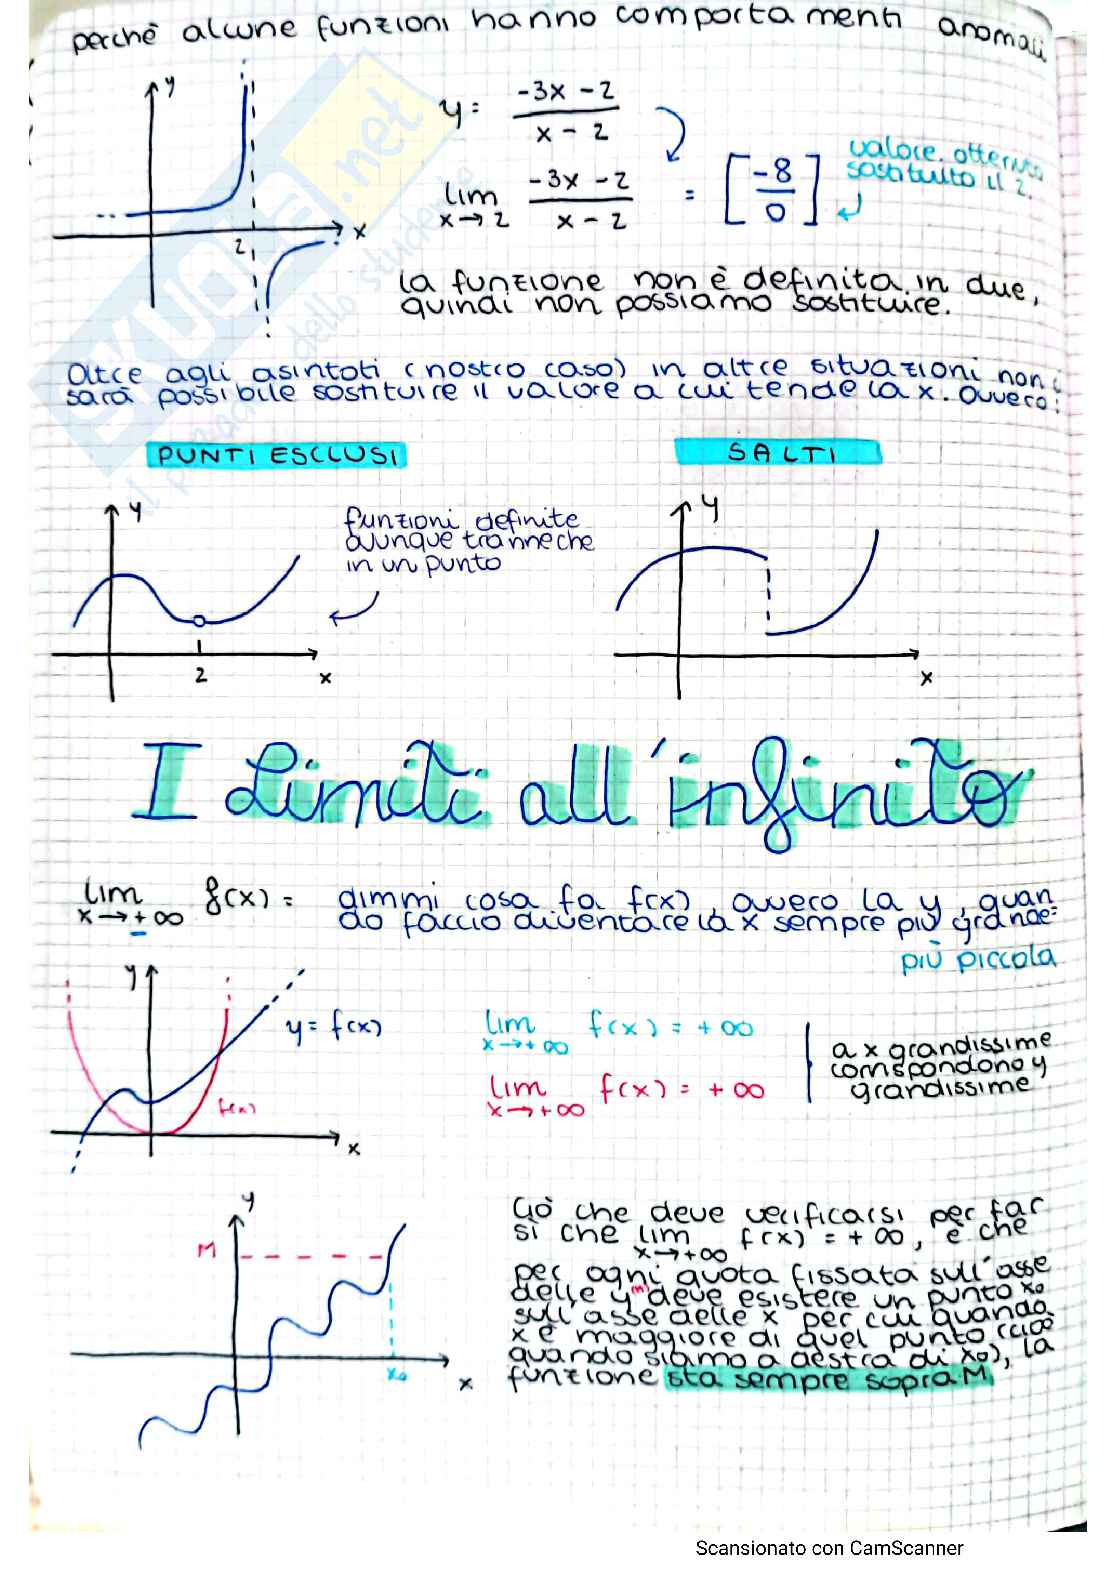 perchè alcune funzioni hanno comportamenti anomali
y
y = -3x - 2 / x - 2
lim x→2 -3x - 2 / x - 2 = [-8/0]
valore ottenuto
sostituito il 2.
2
x
la funzione non è definita in due,
quindi non possiamo sostituire.
Oltre agli asintoti (nostro caso) in altre situazioni non
sarà possibile sostituire il valore a cui tende la x. Ovvero:
PUNTI ESCLUSI
SALTI
y
funzioni definite
ovunque tranne che
in un punto
2
x
y
x
I Limiti all'infinito
lim x→+∞ f(x) = dimmi cosa fa f(x), ovvero la y, quan
do faccio diventare la x sempre più grande
più piccola
y
y = f(x)
f(x)
x
lim x→+∞ f(x) = +∞
lim x→+∞ f(x) = +∞
a x grandissime
corrispondono y
grandissime
y
M
x₀
x
Ciò che deve verificarsi per far
sì che lim x→+∞ f(x) = +∞, è che
per ogni quota fissata sull'asse
delle y (M) deve esistere un punto x₀
sull'asse delle x per cui quando
x è maggiore di quel punto (cioè
quando siamo a destra di x₀), la
funzione sta sempre sopra M
SKUOLA.net
il paradiso dello studente
Scansionato con CamScanner